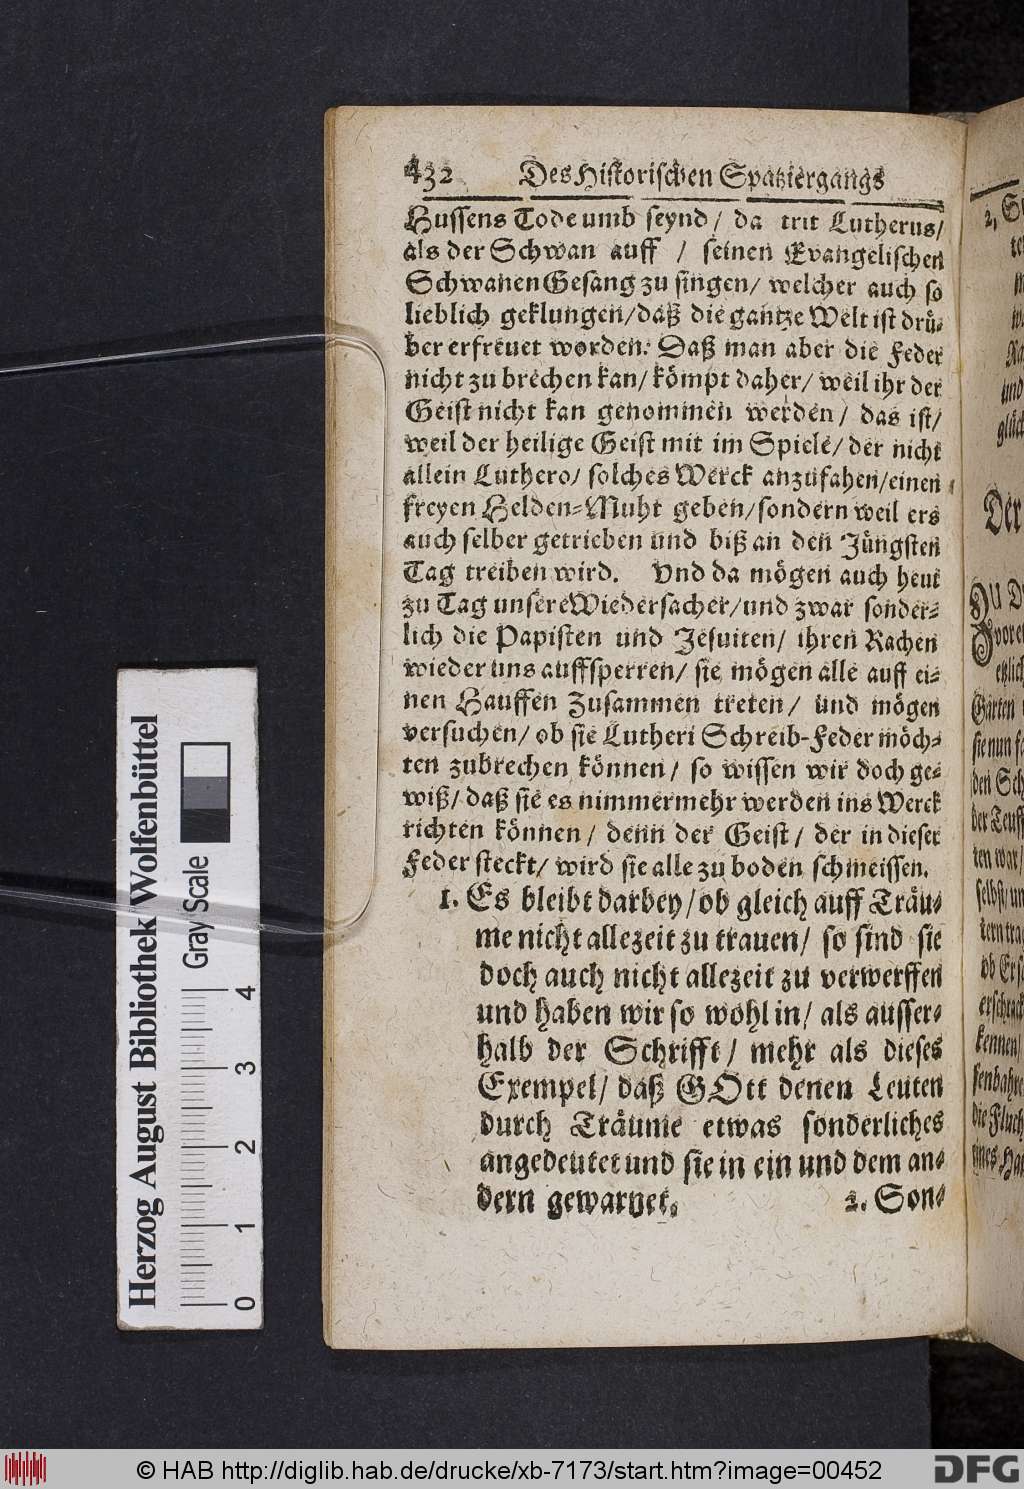 432 Des Historischen Spatziergangs
Hussens Tode umb seynd / da trit Lutherus /
als der Schwan auff / seinen Evangelischen
Schwanen Gesang zu singen / welcher auch so
lieblich geklungen / daß die gantze Welt ist drü-
ber erfreuet worden. Daß man aber die Feder
nicht zu brechen kan / kömpt daher / weil ihr der
Geist nicht kan genommen werden / das ist /
weil der heilige Geist mit im Spiele / der nicht
allein Luthero / solches Werck anzufahen / einen
freyen Helden-Muht geben / sondern weil ers
auch selber getrieben und biß an den Jüngsten
Tag treiben wird. Vnd da mögen auch heut
zu Tag unsere Wiedersacher / und zwar sonder-
lich die Papisten und Jesuiten / ihren Rachen
wieder uns auffsperren / sie mögen alle auff ei-
nen Hauffen Zusammen treten / und mögen
versuchen / ob sie Lutheri Schreib-Feder möch-
ten zubrechen können / so wissen wir doch ge-
wiß / daß sie es nimmermehr werden ins Werck
richten können / denn der Geist / der in dieser
Feder steckt / wird sie alle zu boden schmeissen.
1. Es bleibt darbey / ob gleich auff Träu-
me nicht allezeit zu trauen / so sind sie
doch auch nicht allezeit zu verwerffen
und haben wir so wohl in / als ausser-
halb der Schrifft / mehr als dieses
Exempel / daß GOtt denen Leuten
durch Träume etwas sonderliches
angedeutet und sie in ein und dem an-
dern gewarnet.
2. Son-
Herzog August Bibliothek Wolfenbüttel
Gray Scale
0 1 2 3 4
© HAB http://diglib.hab.de/drucke/xb-7173/start.htm?image=00452
DFG